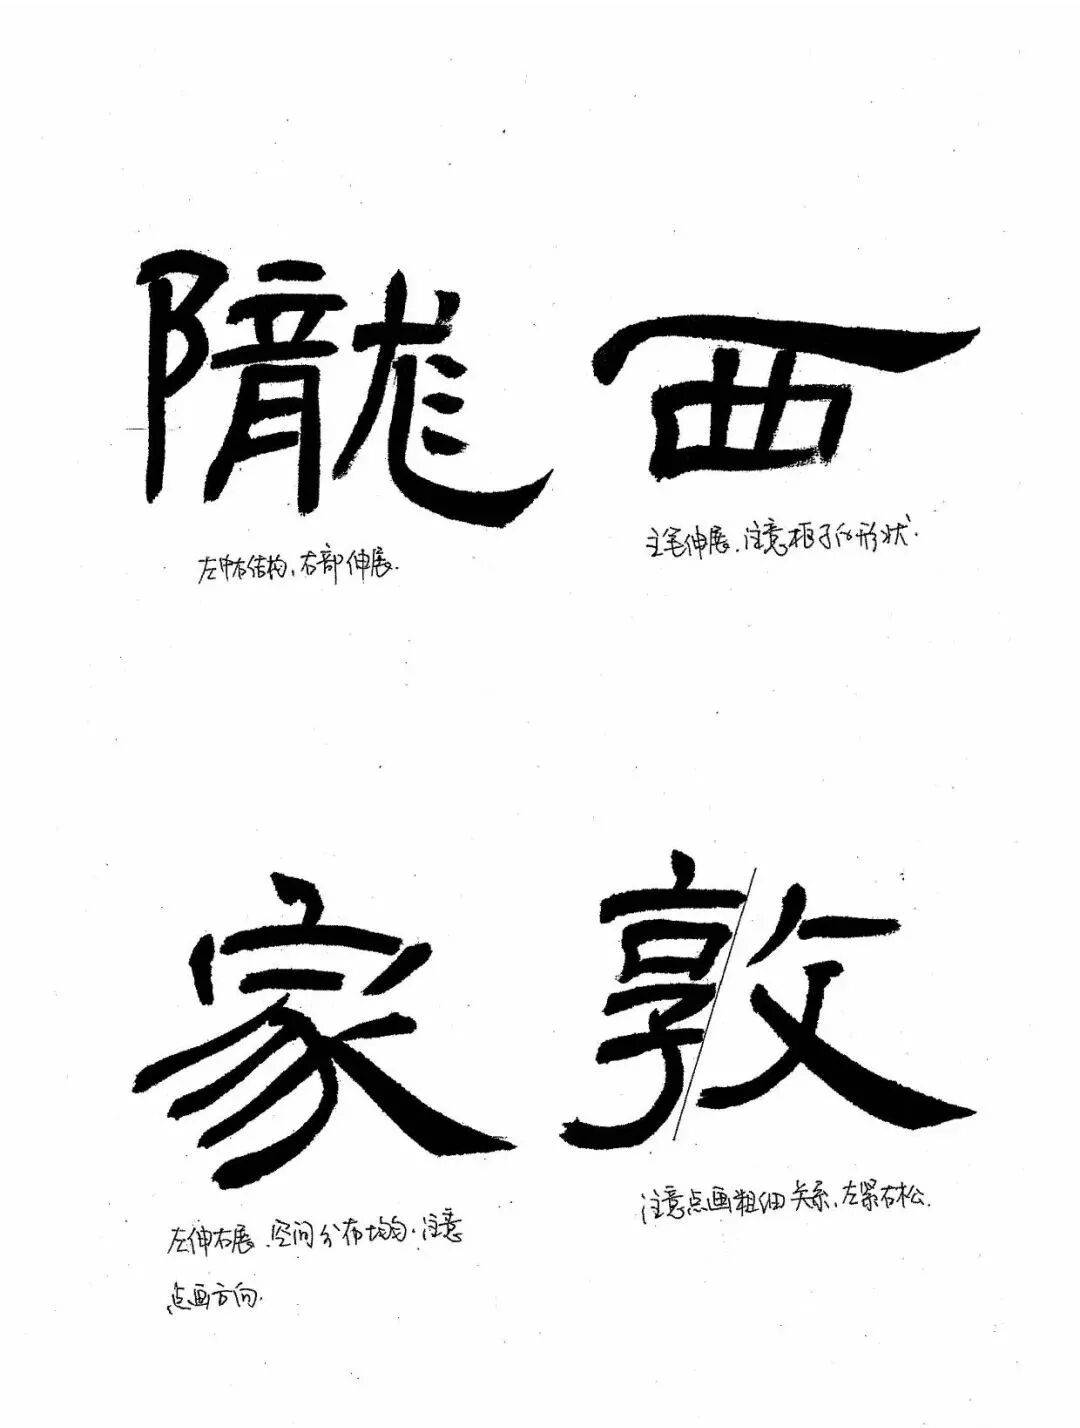 隴西
左中右结构、右部伸展.
主笔伸展、注意框子的形状.
家敦
左伸右展、空间分布均匀.注意
点画方向.
注意点画粗细关系、左紧右松.